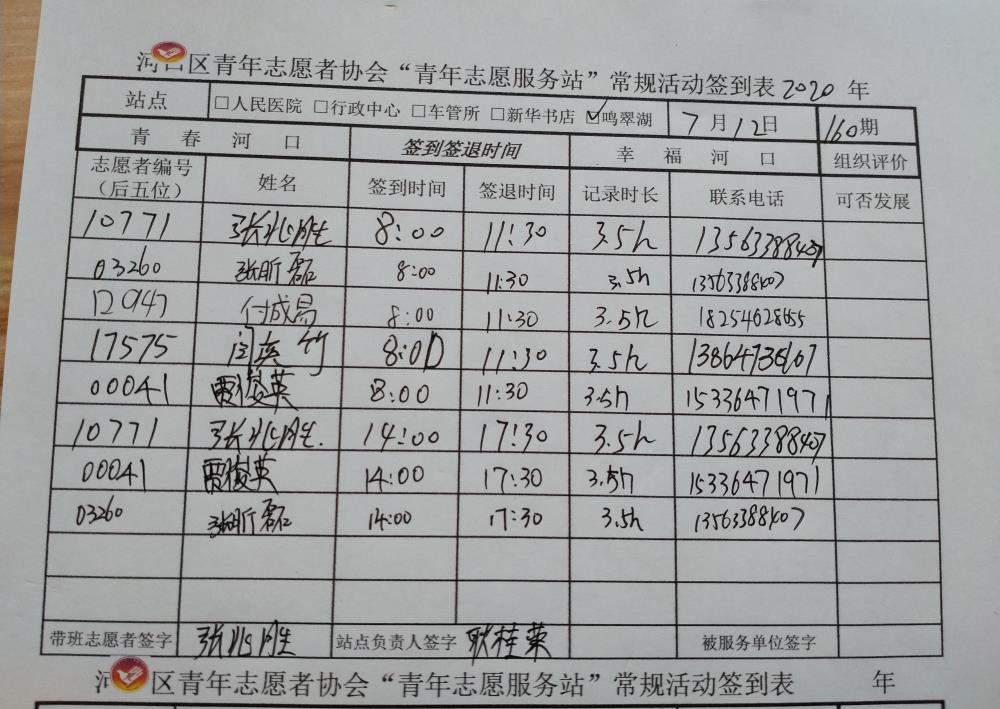 河口区青年志愿者协会“青年志愿服务站”常规活动签到表2020 年
站点 □人民医院 □行政中心 □车管所 □新华书店 ☑鸣翠湖 7月12日 160期
青春河口 签到签退时间 幸福河口 组织评价
志愿者编号（后五位） 姓名 签到时间 签退时间 记录时长 联系电话 可否发展
10771 张兆胜 8:00 11:30 3.5h 13563388407
03260 张昕磊 8:00 11:30 3.5h 13563388407
12947 付成易 8:00 11:30 3.5h 18254628655
17575 闫英竹 8:00 11:30 3.5h
00041 贾俊英 8:00 11:30 3.5h 15336471971
10771 张兆胜. 14:00 17:30 3.5h 13563388407
00041 贾俊英 14:00 17:30 3.5h 15336471971
03260 张昕磊 14:00 17:30 3.5h 13563388407
带班志愿者签字 张兆胜 站点负责人签字 耿桂荣 被服务单位签字
河 区青年志愿者协会“青年志愿服务站”常规活动签到表 年